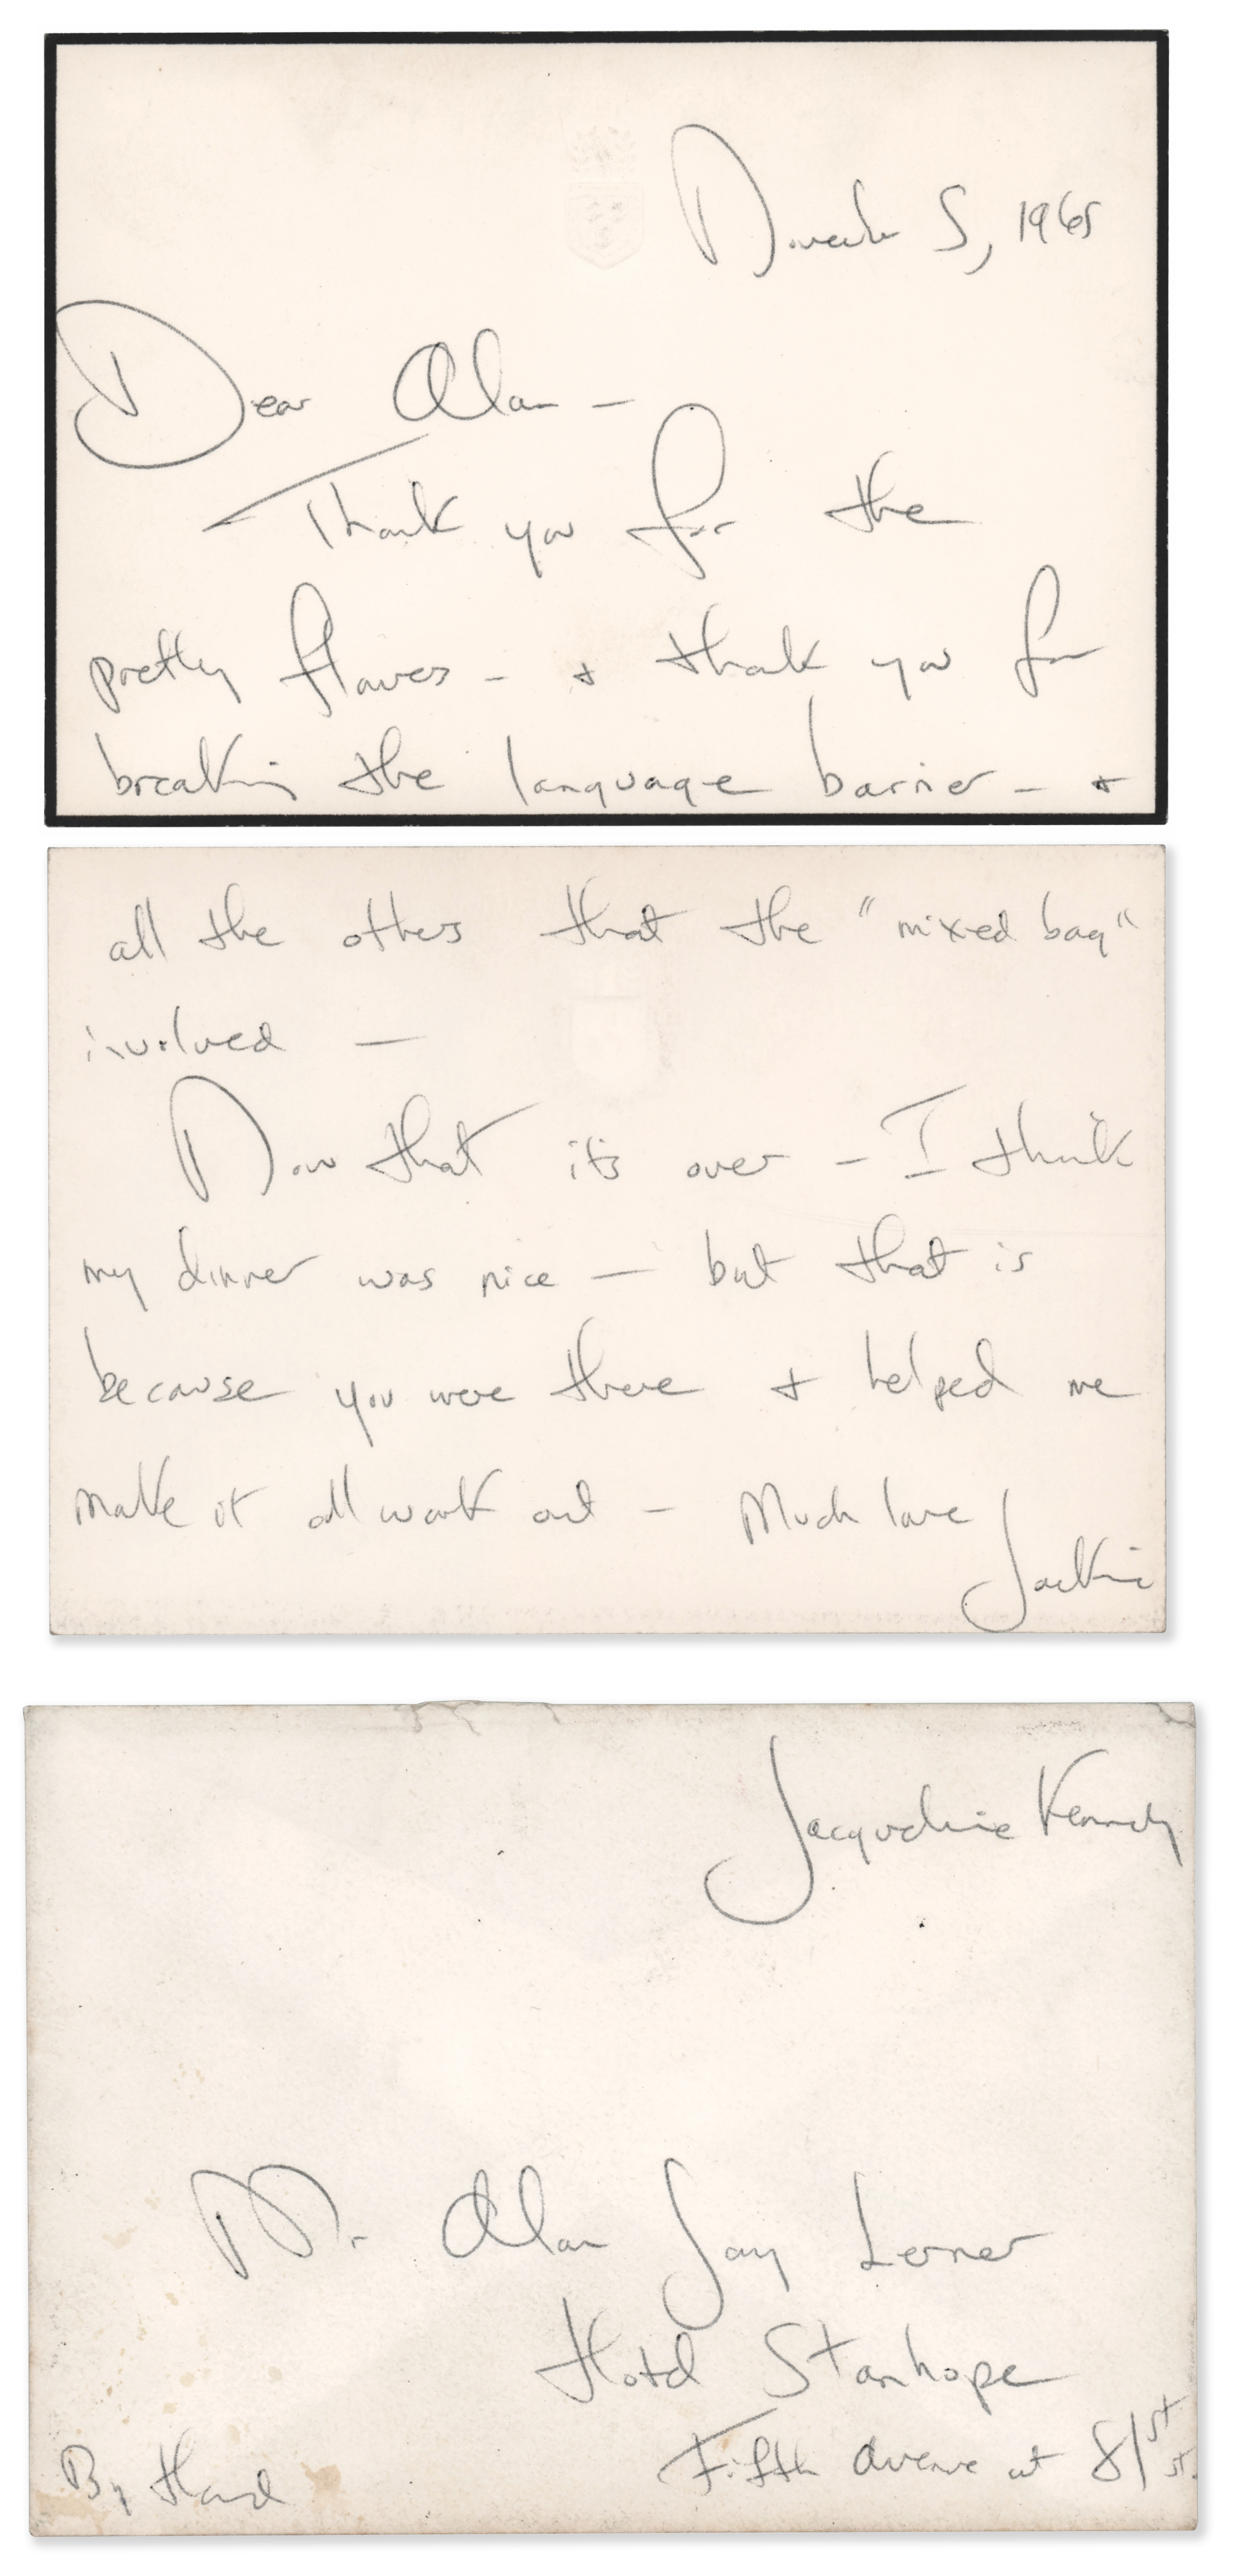 November 5, 1965
Dear Alan —
Thank you for the
pretty flowers — + thank you for
breaking the language barrier — +
all the others that the "mixed bag"
involved —
Now that its over — I think
my dinner was nice — but that is
because you were there + helped me
make it all work out — Much love
Jackie
Jacqueline Kennedy
Mr Alan Jay Lerner
Hotel Stanhope
Fifth Avenue at 81st St.
By Hand